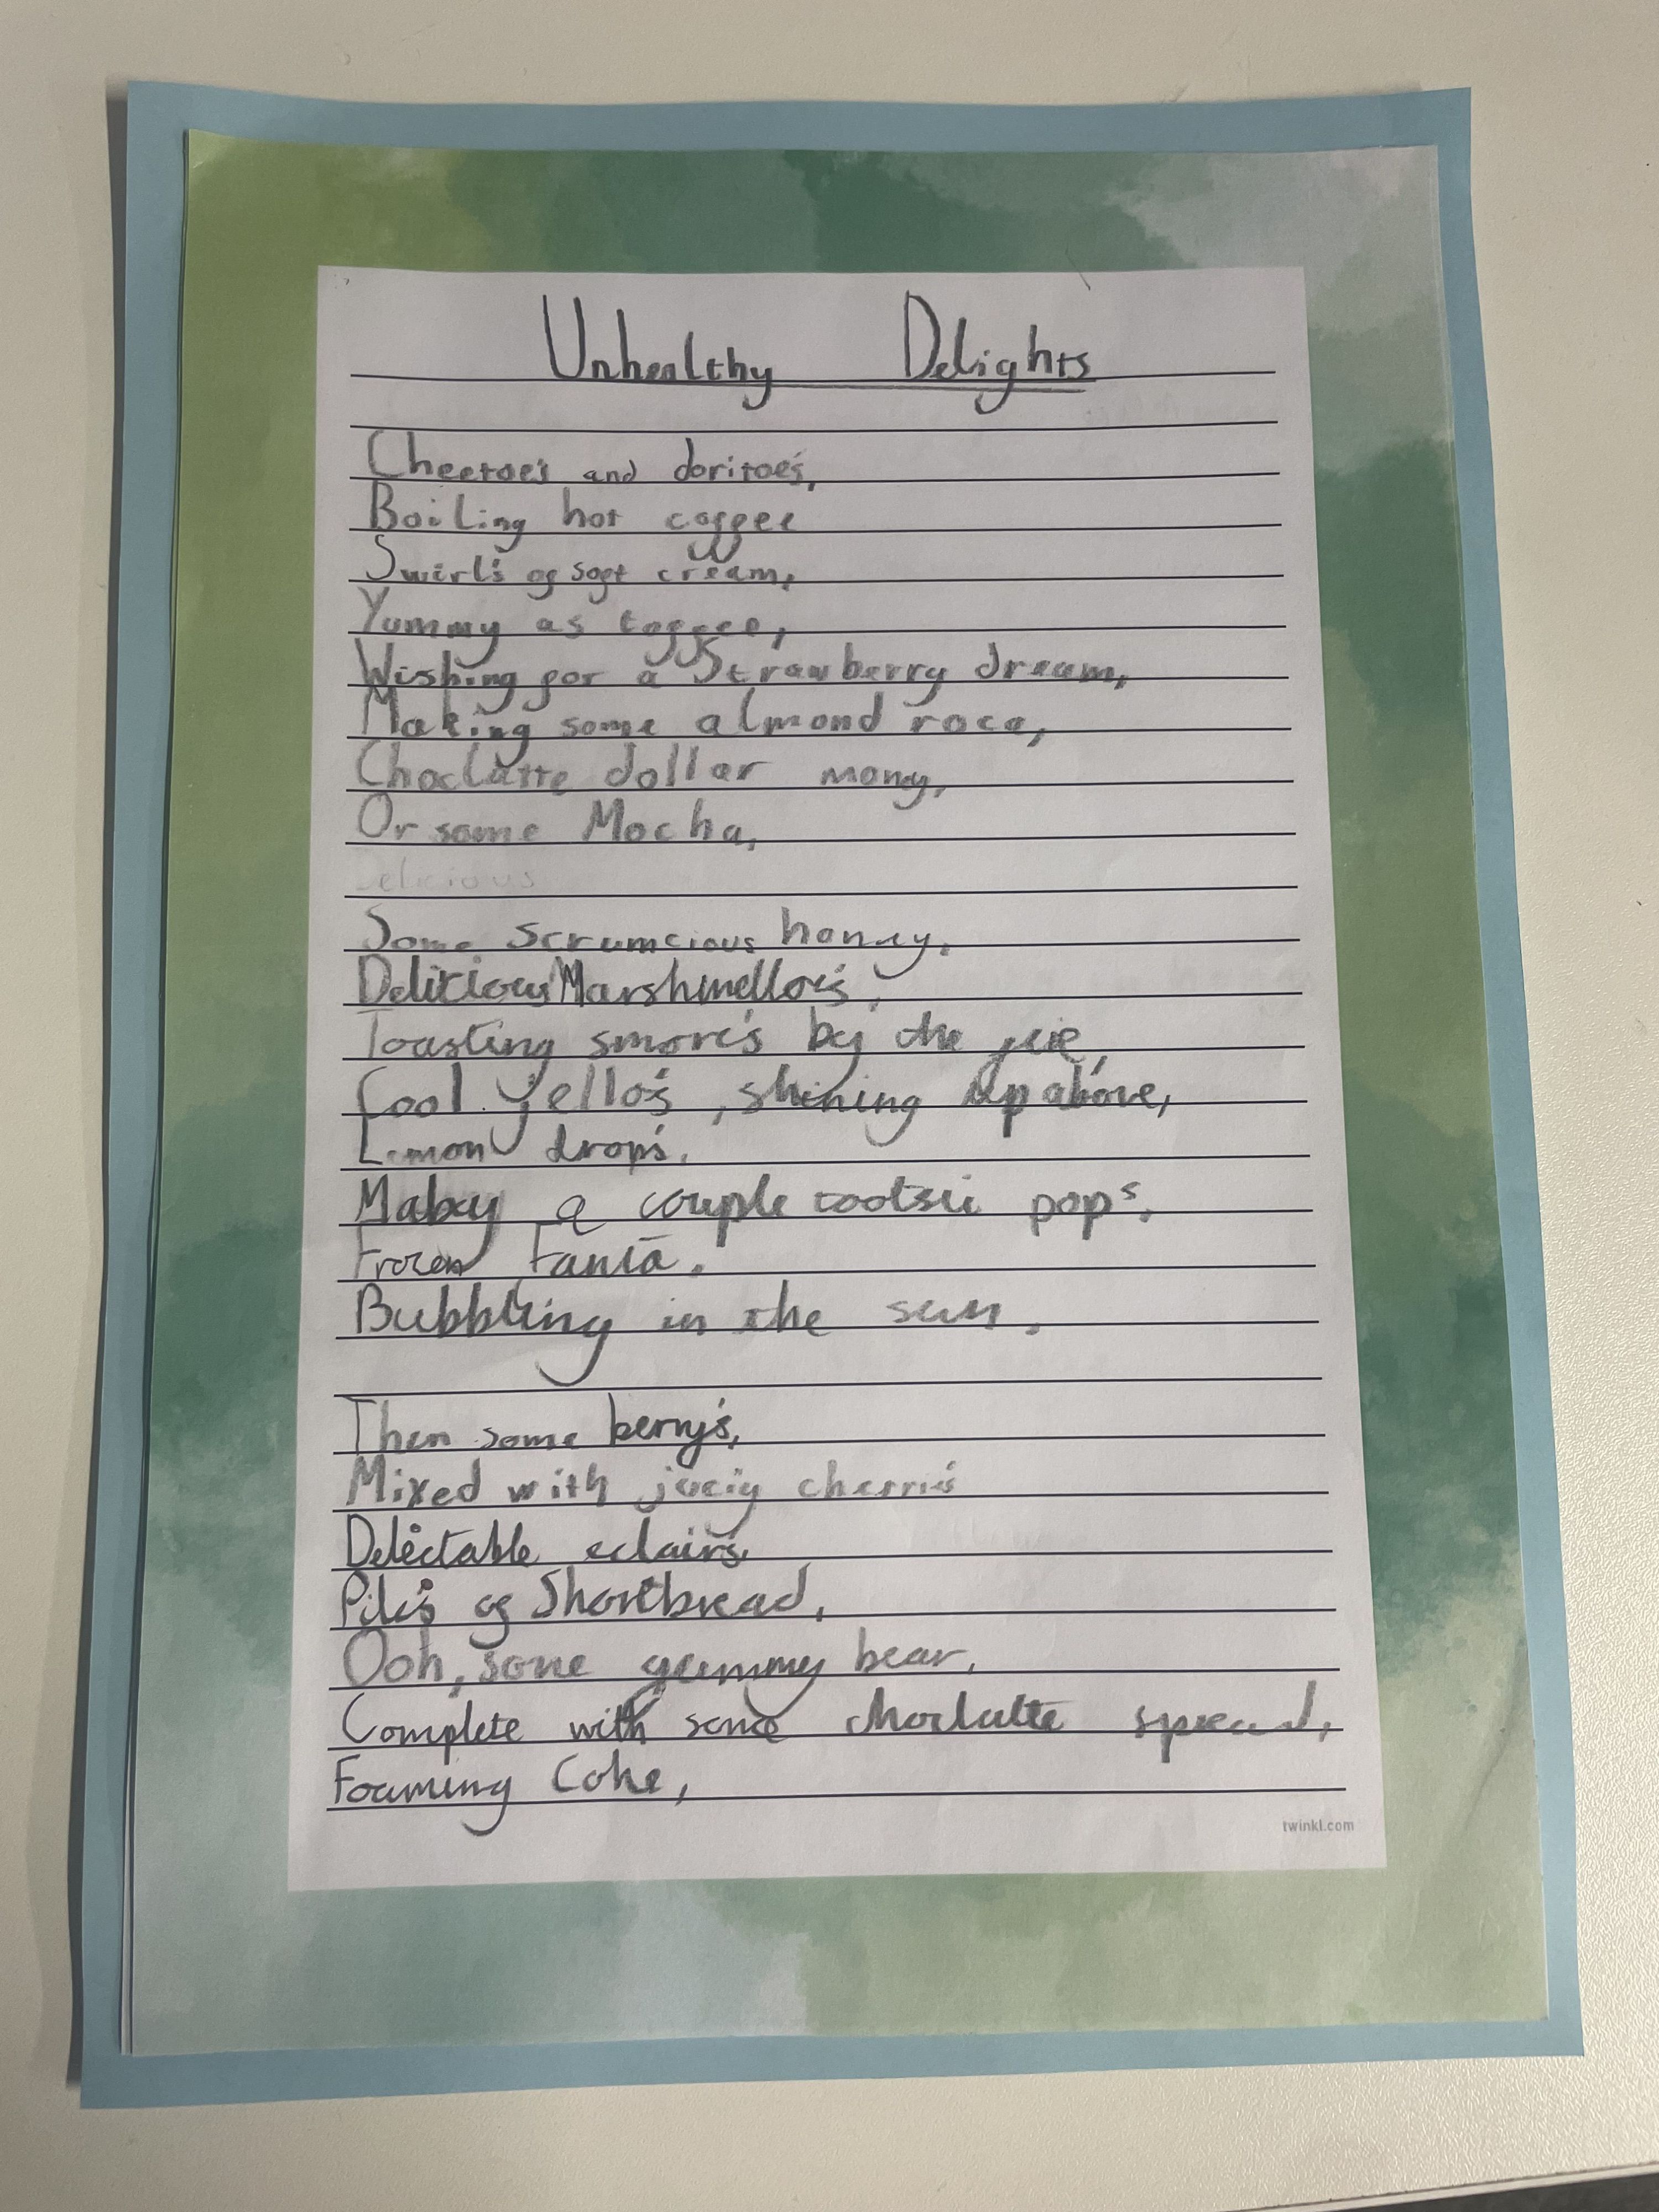 Unhealthy Delights
Cheetoe's and doritoe's,
Boiling hot coffee
Swirl's of soft cream,
Yummy as toffee,
Wishing for a Strawberry dream,
Making some almond roca,
Choclatte dollar mony,
Or some Mocha,
elicious
Some scrumcious honey,
Delicious Marshmellow's,
Toasting smore's by the fire,
Cool jello's, shining up above,
Lemon drop's,
Maby a couple tootsie pops,
Frozen Fanta.
Bubbling in the sun,
Then some berry's,
Mixed with juciy cherrie's
Delectable eclairs,
Pile's of Shortbread,
Ooh, some gummy bear,
Complete with some choclatte spread,
Foaming Coke,
twinkl.com